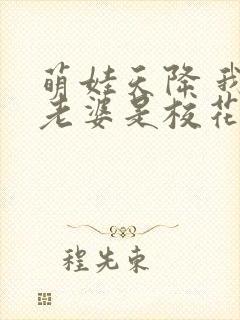 萌娃天降 我
老婆是校花
程先东